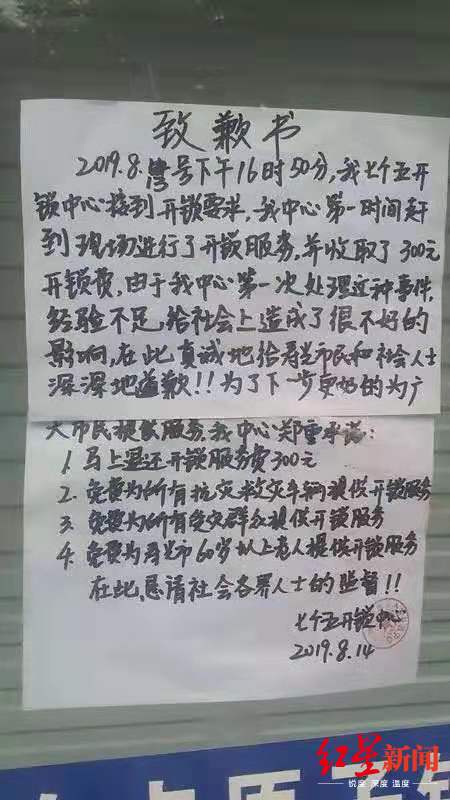 致歉书
2019.8.号下午16时50分,我七个五开
锁中心接到开锁要求,我中心第一时间赶
到现场进行了开锁服务,并收取了300元
开锁费,由于我中心第一次处理这种事件,
经验不足给社会上造成了很不好的
影响,在此真诚地给寿光市民和社会人士
深深地道歉!!为了下一步更好的为广
大市民提供服务,我中心郑重承诺:
1. 马上退还开锁服务费300元
2. 免费为所有抗灾救灾车辆提供开锁服务
3. 免费为所有受灾群众提供开锁服务
4. 免费为寿光市60岁以上老人提供开锁服务
在此,恳请社会各界人士的监督!!
七个五开锁中心
2019.8.14
红星新闻
锐度 深度 温度